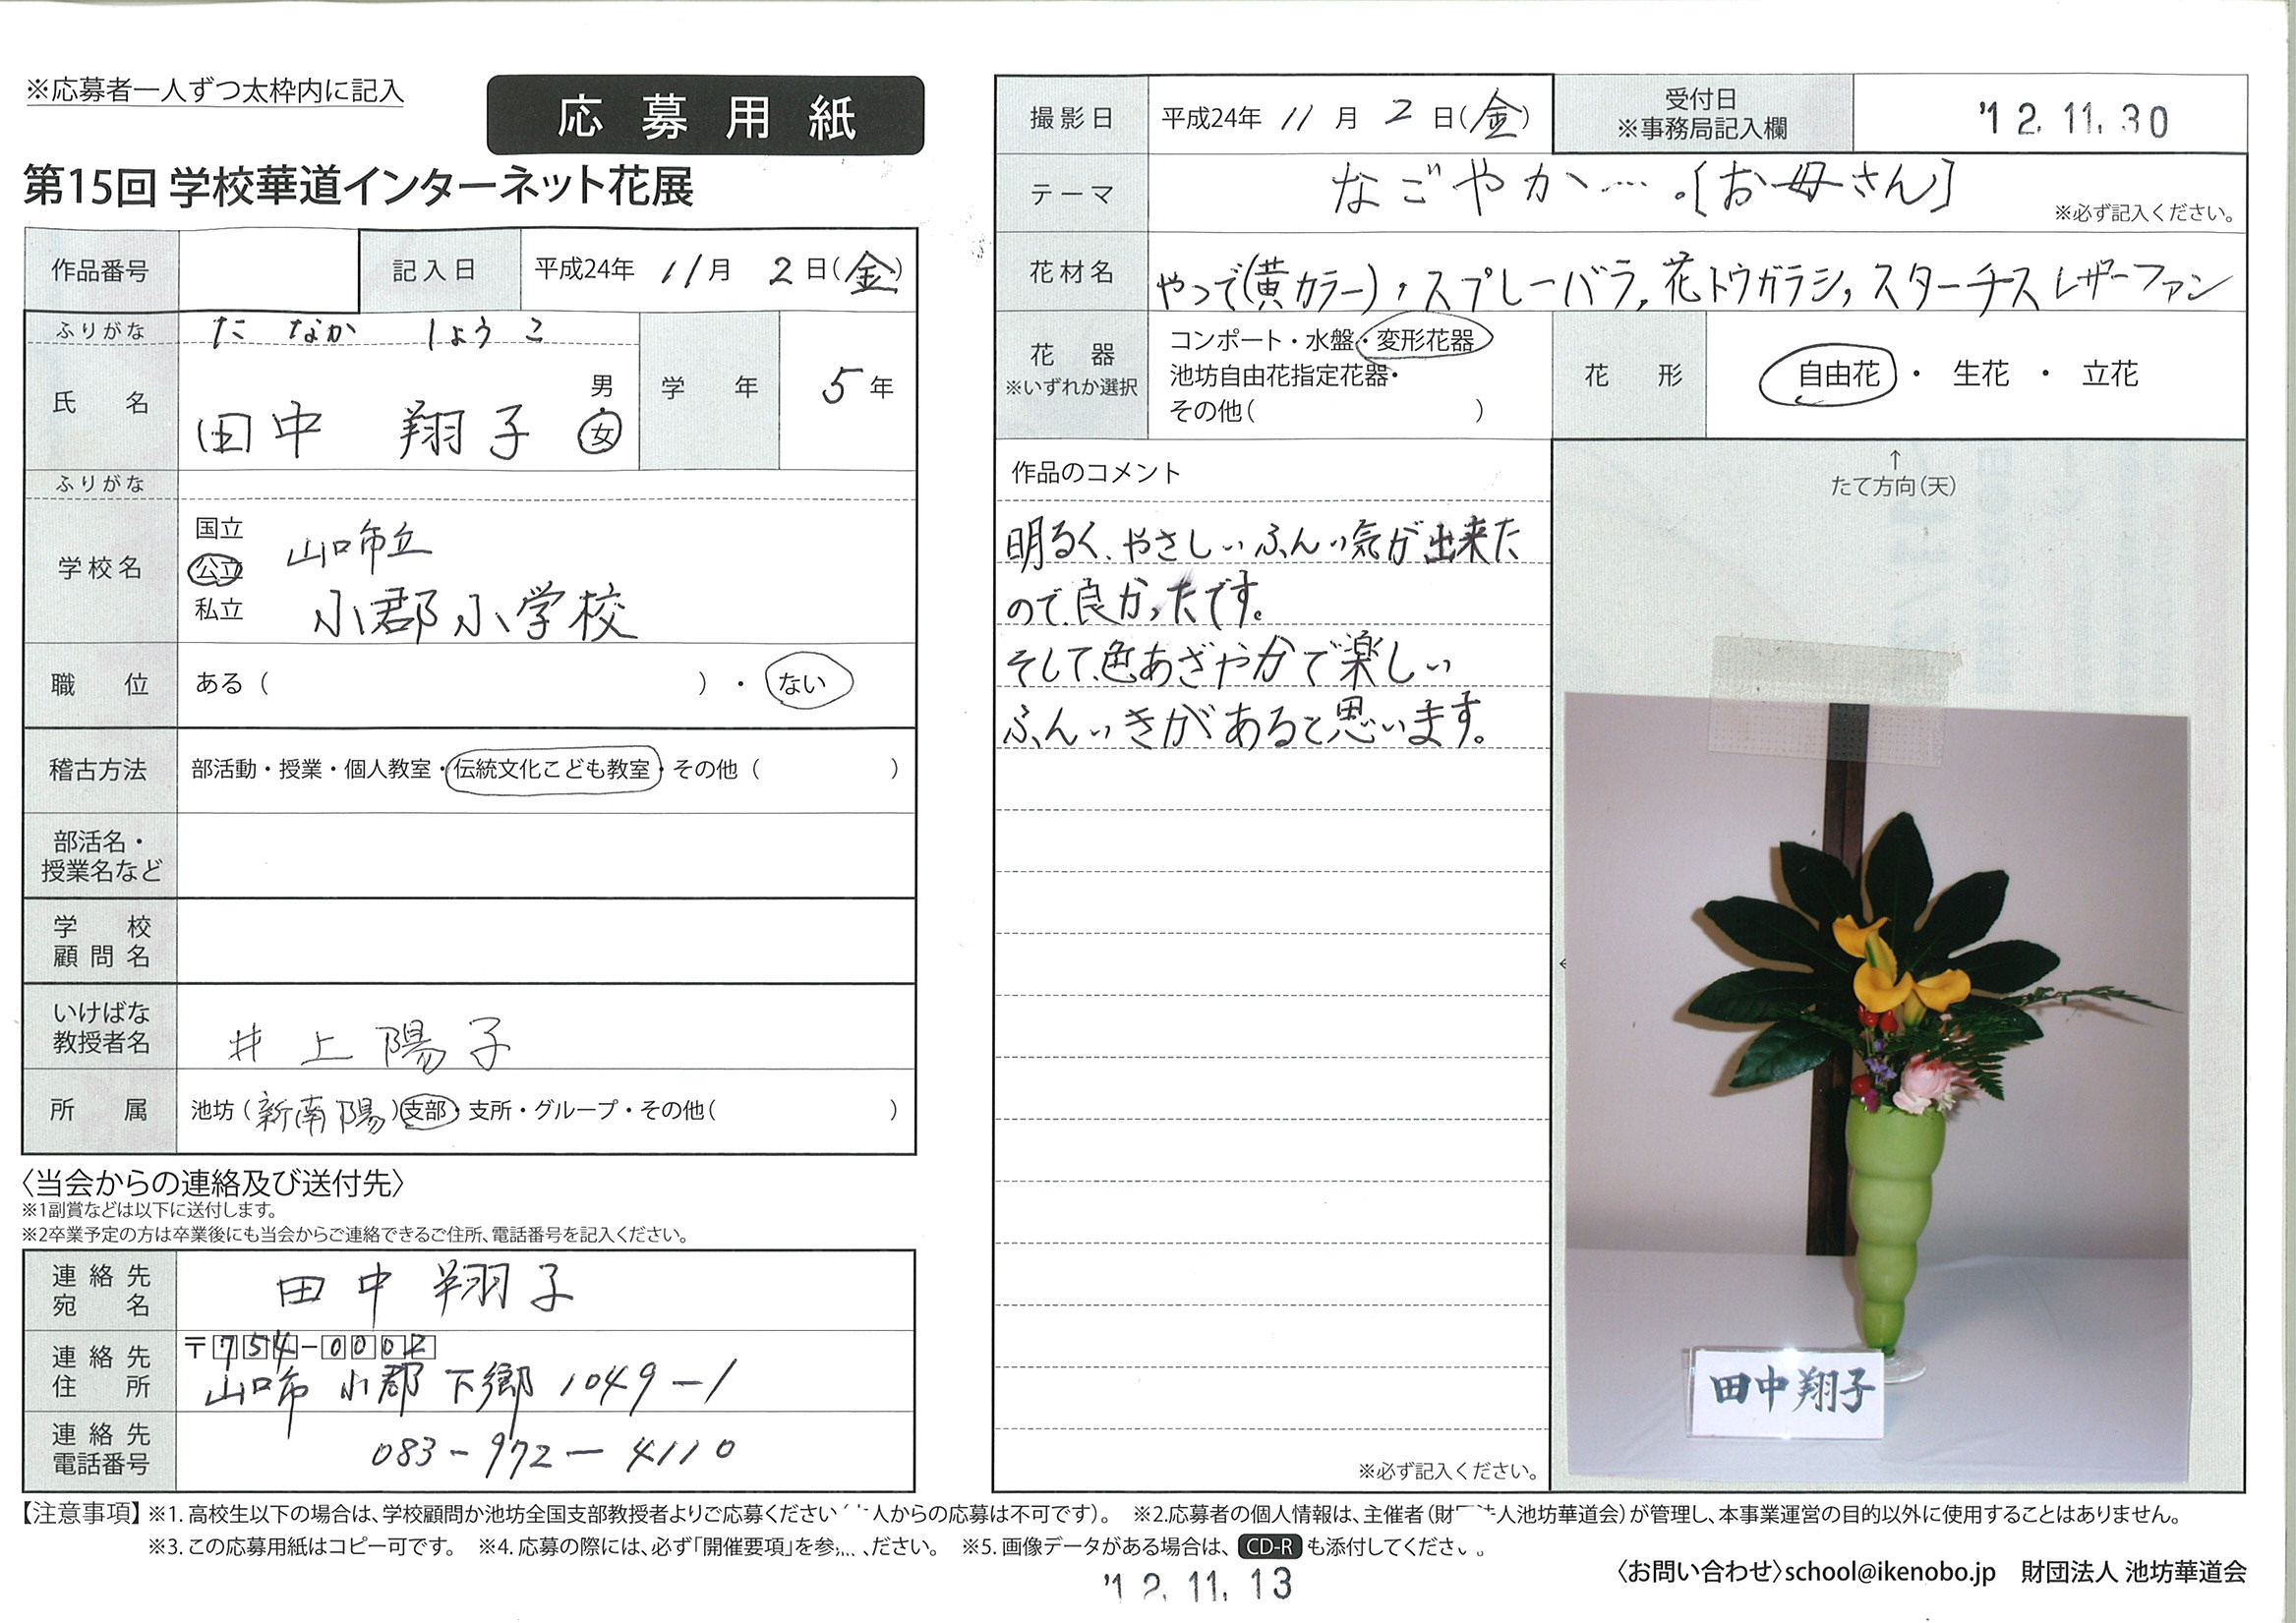 ※応募者一人ずつ太枠内に記入
応募用紙
第15回 学校華道インターネット花展
作品番号
記入日 平成24年 11月 2日(金)
ふりがな たなか しょうこ
氏名 田中 翔子 男・女
学年 5年
ふりがな
学校名 国立 公立 私立
山口市立
小郡小学校
職位 ある( )・ない
稽古方法 部活動・授業・個人教室・伝統文化こども教室・その他( )
部活名・
授業名など
学校
顧問名
いけばな
教授者名 井上陽子
所属 池坊(新南陽)支部・支所・グループ・その他( )
〈当会からの連絡及び送付先〉
※1副賞などは以下に送付します。
※2卒業予定の方は卒業後にも当会からご連絡できるご住所、電話番号を記入ください。
連絡先
宛名 田中翔子
連絡先
住所 〒754-0002
山口市 小郡 下郷 1049-1
連絡先
電話番号 083-972-4110
撮影日 平成24年 11月 2日(金)
受付日
※事務局記入欄 '12.11.30
テーマ なごやか….〔お母さん〕
※必ず記入ください。
花材名 やつで(黄カラー),スプレーバラ,花トウガラシ,スターチス レザーファン
花器
※いずれか選択
コンポート・水盤・変形花器
池坊自由花指定花器・
その他( )
花形 自由花・生花・立花
作品のコメント
明るく、やさしいふんい気が出来た
ので、良かったです。
そして、色あざやかで楽しい
ふんいきがあると思います。
※必ず記入ください。
↑
たて方向(天)
田中翔子
【注意事項】※1. 高校生以下の場合は、学校顧問か池坊全国支部教授者よりご応募ください 人からの応募は不可です)。 ※2.応募者の個人情報は、主催者(財 人池坊華道会)が管理し、本事業運営の目的以外に使用することはありません。
※3. この応募用紙はコピー可です。 ※4. 応募の際には、必ず「開催要項」を参 ださい。 ※5. 画像データがある場合は、 CD-R も添付してくださ
'12.11.13
〈お問い合わせ〉school@ikenobo.jp 財団法人 池坊華道会